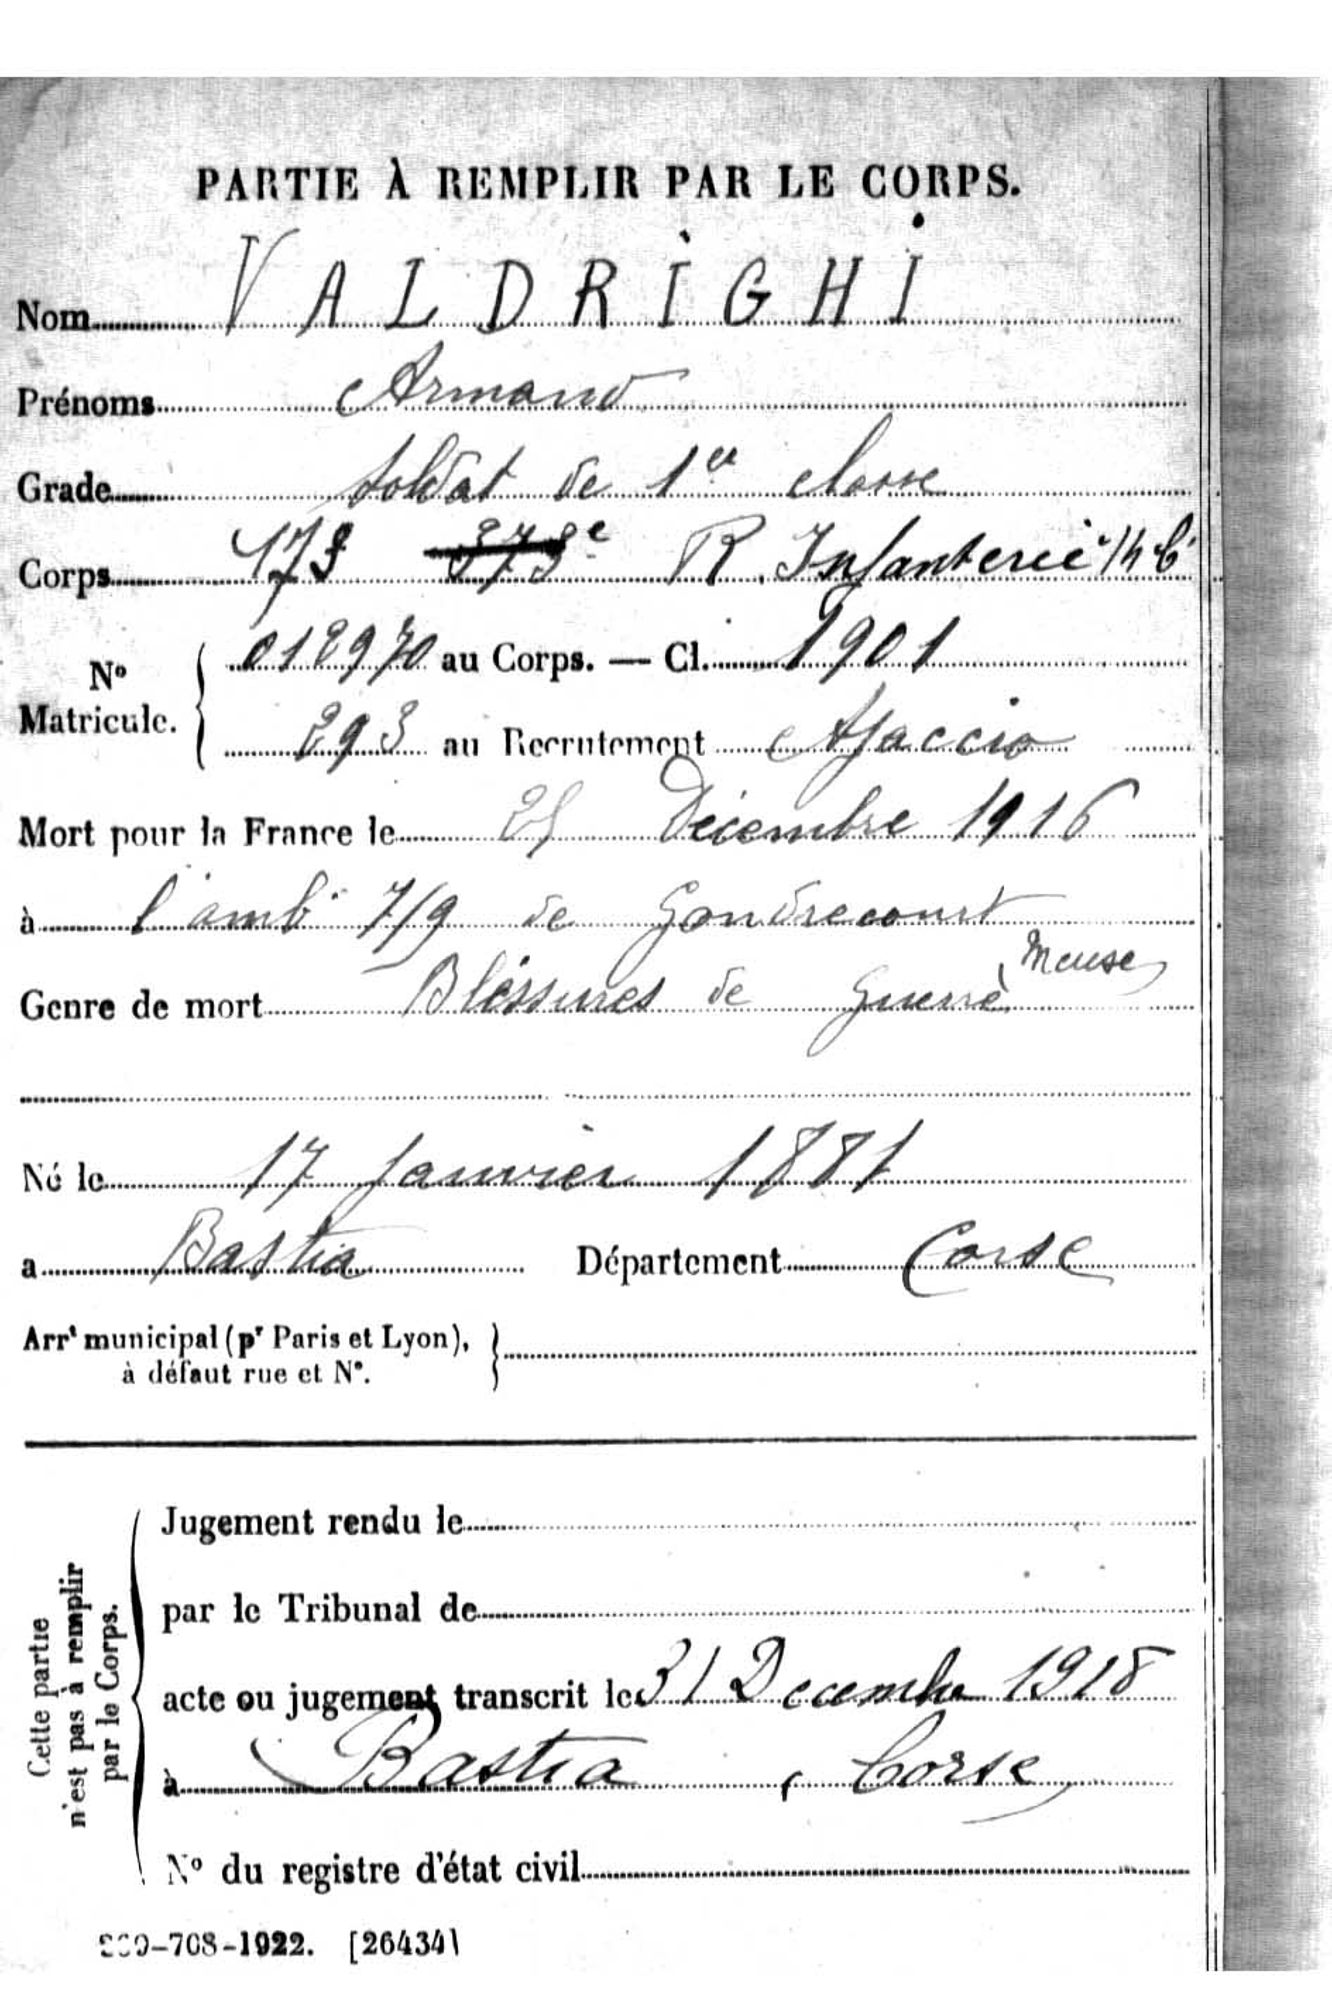 PARTIE À REMPLIR PAR LE CORPS.
Nom VALDRIGHI
Prénoms Armand
Grade Soldat de 1er classe
Corps 173 373e R. Infanterie
No Matricule. 012970 au Corps. — Cl. 1901
293 au Recrutement Ajaccio
Mort pour la France le 25 Décembre 1916
à l'amb 7/9 de Gondrecourt
Meuse
Genre de mort Bléssures de Guerre
Né le 17 Janvier 1881
a Bastia Département Corse
Arrt municipal (pr Paris et Lyon),
à défaut rue et No.
Cette partie
n'est pas à remplir
par le Corps.
Jugement rendu le
par le Tribunal de
acte ou jugement transcrit le 31 Decembre 1918
à Bastia, Corse
No du registre d'état civil
-708-1922. [26434]